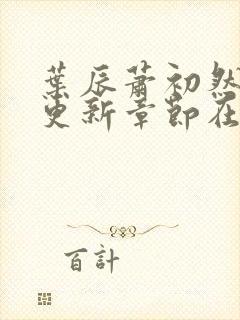 葉辰蕭初然
更新章節在
百計